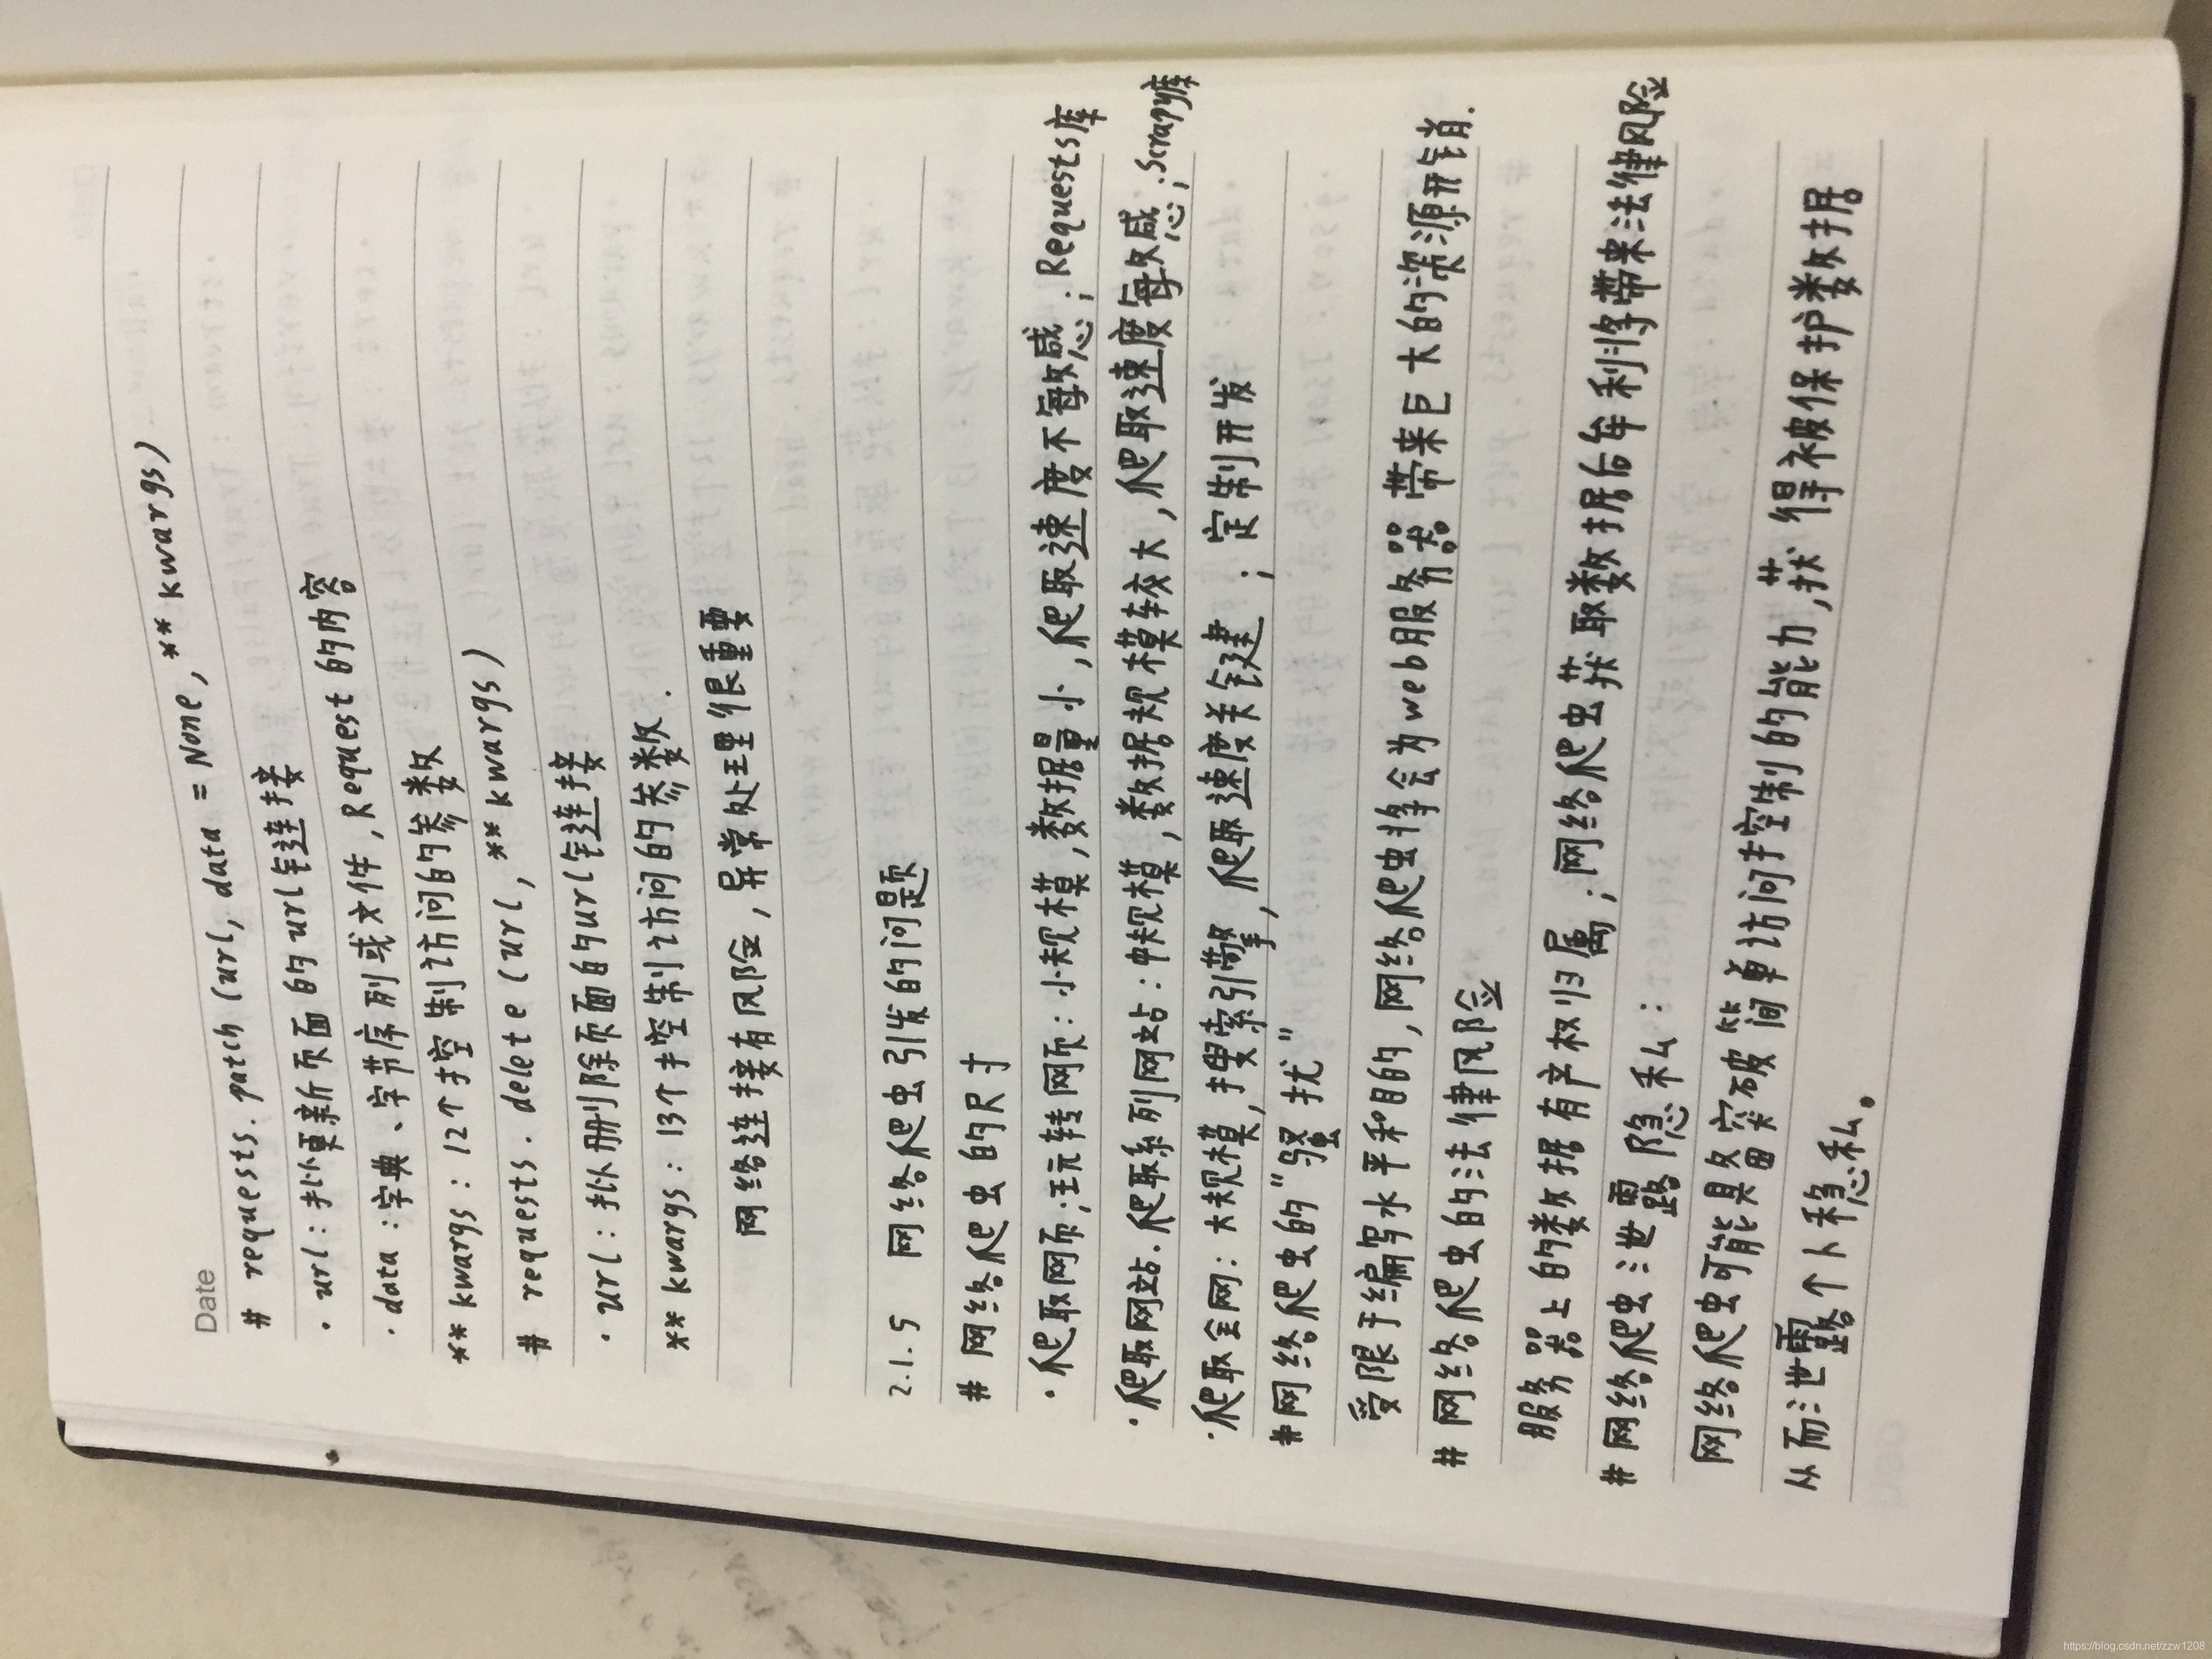 Date
# requests. patch (url, data = None, ** kwargs)
· url : 拟更新页面的url链连接
· data : 字典、字节序列或文件, Request的内容
** kwargs : 12个控制访问的参数
# requests. delete (url, ** kwargs)
· url : 拟删除页面的url链连接
** kwargs : 13个控制访问的参数.
网络连接有风险, 异常处理很重要
2.1.5 网络爬虫引发的问题
# 网络爬虫的尺寸
· 爬取网页; 玩转网页 : 小规模, 数据量小, 爬取速度不敏感; Requests库
· 爬取网站. 爬取系列网站 : 中规模, 数据规模较大, 爬取速度敏感; Scrapy库
· 爬取全网 : 大规模, 搜索引擎, 爬取速度关键 ; 定制开发
# 网络爬虫的"骚扰"
受限于编写水平和目的, 网络爬虫将会为web服务器带来巨大的资源开销.
# 网络爬虫的法律风险
服务器上的数据有产权归属; 网络爬虫获取数据后牟利将带来法律风险
# 网络爬虫泄露隐私 :
网络爬虫可能具备突破简单访问控制的能力, 获得被保护数据
从而泄露个人隐私。
https://blog.csdn.net/zzw1208